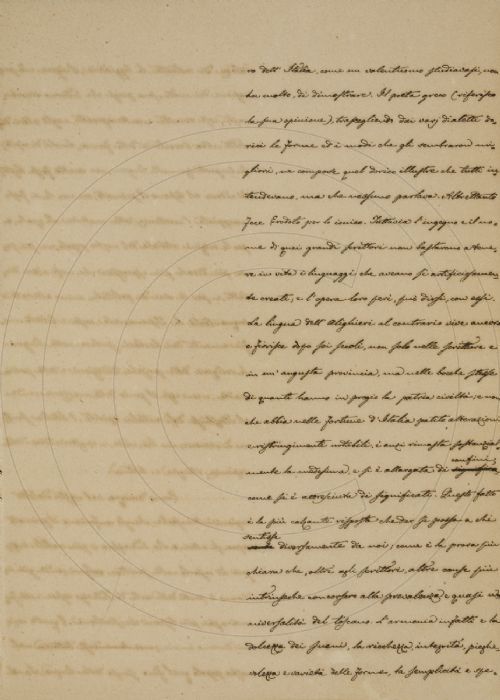 ro dell' Italia, come un valentuomo studiavasi, non
ha molto, di dimostrare. Il poeta greco (riferisco
la sua opinione), trascegliendo dai varj dialetti do-
rici le forme ed i modi che gli sembraron mi-
gliori, ne compose quel dorico illustre che tutti in-
tendevano, ma che nessuno parlava. Altrettanto
fece Erodoto per lo ionico. Tuttavia l'ingegno e il no-
me di quei grandi scrittori non bastarono a tene-
re in vita i linguaggi che aveano sì artificiosamen-
te creati, e l'opera loro perì, può dirsi, con essi.
La lingua dell'Alighieri al contrario vive ancora
e fiorisce dopo sei secoli, non solo nelle scritture e
in un'augusta provincia, ma nelle bocche stesse
di quanti hanno in pregio la patria civiltà; e non
che abbia nelle fortune d'Italia patito alterazioni
e ristringimenti notabili, è anzi rimasta sostanzial-
confini,
mente la medesima e si è allargata di
come si è accresciuta di significati. Questo fatto
è la più calzante risposta che dar si possa a chi
sentisse
diversamente da noi; come è la prova più
chiara che, oltre agli scrittori, altre cause più
intrinseche concorsero alla prevalenza e quasi u-
niversalità del toscano. L'armonia infatti e la
dolcezza dei suoni, la ricchezza, integrità, pieghe-
volezza e varietà delle forme, la semplicità e spe-